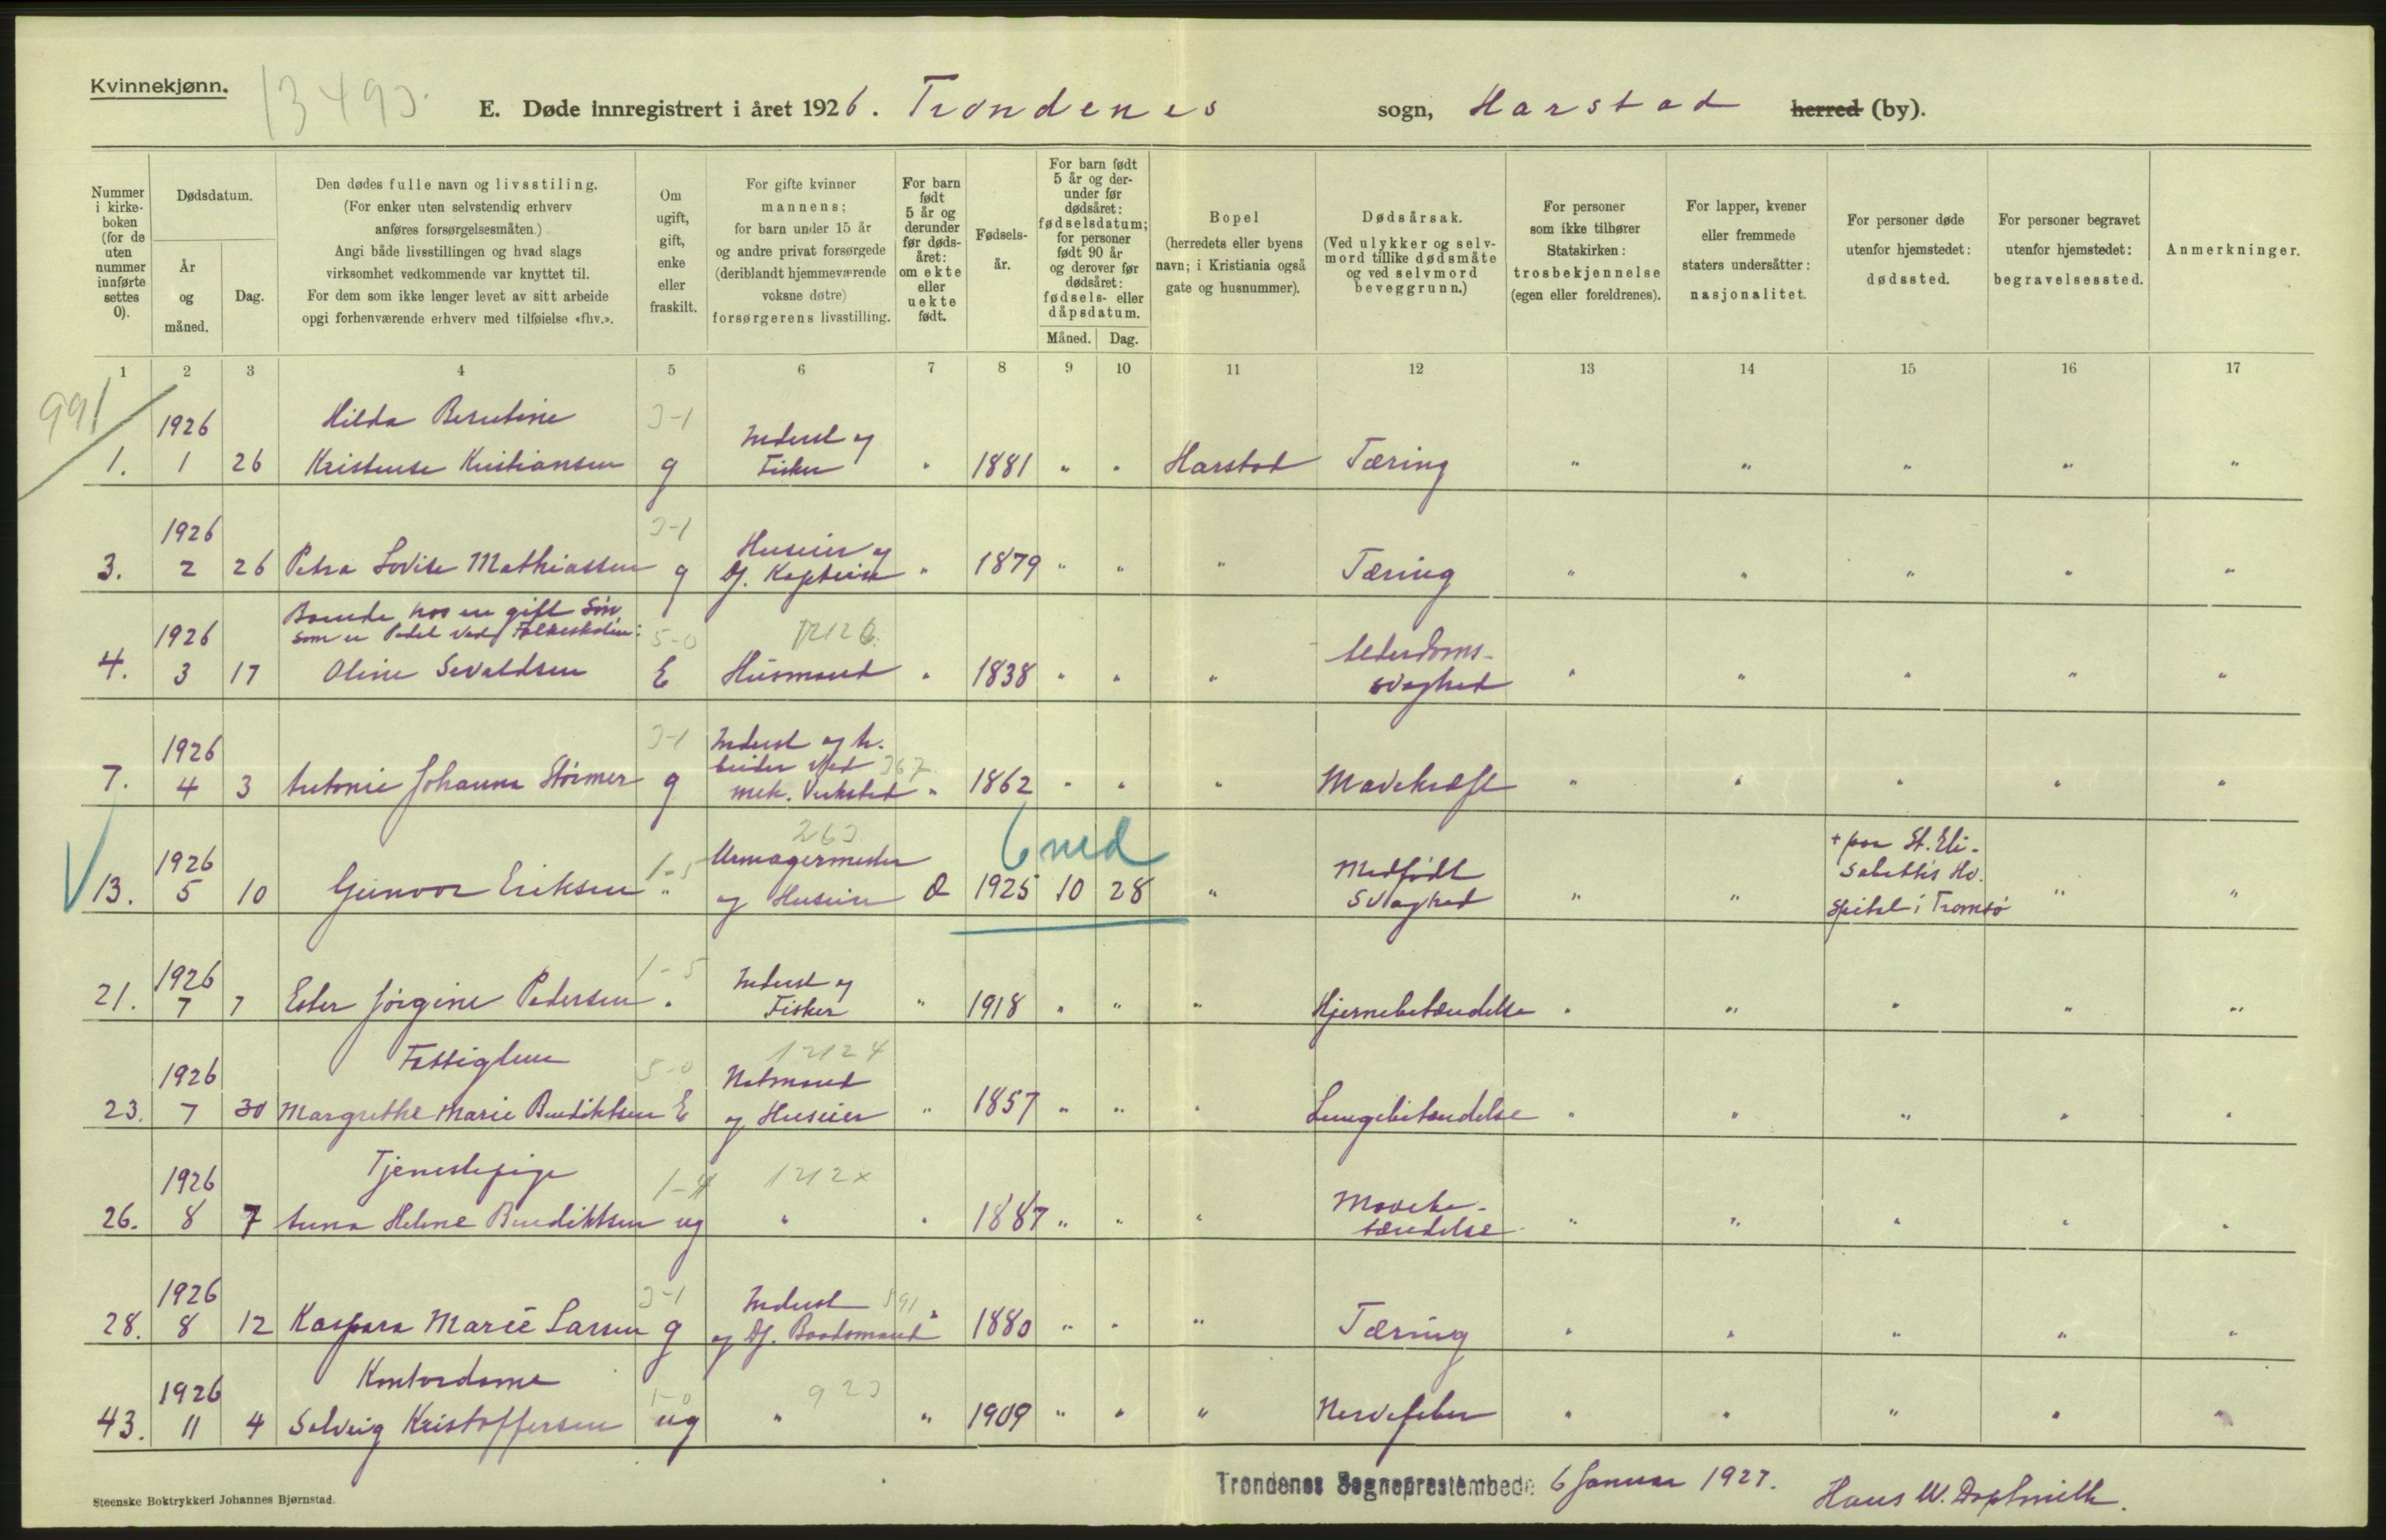 Kvinnekjønn.
E. Døde innregistrert i året 1926. Trondenes sogn, Harstad herred (by).
Nummer i kirkeboken (for de uten nummer innførte settes 0).
Dødsdatum.
År og måned.
Dag.
Den dødes fulle navn og livsstiling.
(For enker uten selvstendig erhverv
anføres forsørgelsesmåten.)
Angi både livsstillingen og hvad slags
virksomhet vedkommende var knyttet til.
For dem som ikke lenger levet av sitt arbeide
opgi forhenværende erhverv med tilføielse «fhv.».
Om ugift, gift, enke eller fraskilt.
For gifte kvinner
mannens;
for barn under 15 år
og andre privat forsørgede
(deriblandt hjemmeværende
voksne døtre)
forsørgerens livsstilling.
For barn født 5 år og derunder før dødsåret: om ekte eller uekte født.
Fødselsår.
For barn født 5 år og derunder før dødsåret: fødselsdatum; for personer født 90 år og derover før dødsåret: fødsels- eller dåpsdatum.
Måned. Dag.
Bopel
(herredets eller byens
navn; i Kristiania også
gate og husnummer).
Dødsårsak.
(Ved ulykker og selv-
mord tillike dødsmåte
og ved selvmord
beveggrunn.)
For personer
som ikke tilhører
Statskirken:
trosbekjennelse
(egen eller foreldrenes).
For lapper, kvener
eller fremmede
staters undersåtter:
nasjonalitet.
For personer døde
utenfor hjemstedet:
dødssted.
For personer begravet
utenfor hjemstedet:
begravelsessted.
Anmerkninger.
1 2 3 4 5 6 7 8 9 10 11 12 13 14 15 16 17
991
1926 Hilda 3-1 Inderst og
1. 1 26 Kristense Kristiansen g Fisker " 1881 " " Harstad Tæring " " " " "
1926 3-1 Huseier og
3. 2 26 Petra Lovise Mathiassen g " 1879 " " " Tæring " " " " "
Boende hos en gift Søn
1926 som er Pedel ved Folkeskolen: 5-0 Alderdoms-
4. 3 17 Oline Sevaldsen E Husmand " 1838 " " " svaghed " " " " "
1926 3-1 Inderst og Ar-
beider ved 367
7. 4 3 Antonie Johanna Størmer g mek. Verksted " 1862 " " " Mavekræft " " " " "
263 6 md + paa St. Eli-
1926 1-5 Urmagermester Medfødt sabeths Ho-
13. 5 10 Gunvor Eriksen " og Huseier 1925 10 28 " Svaghed " " spital i Tromsø " "
1926 1-5 Inderst og
21. 7 7 Ester Jørgine Pedersen " Fisker " 1918 " " " Hjernebetændelse " " " " "
Fattiglem 12124
1926 5-0 Natmand
23. 7 30 Margrethe Marie Bendiktsen E og Huseier " 1857 " " " Lungebetændelse " " " " "
1926 Tjenestepige 1-4 1212x Mavebe-
26. 8 7 Anna Helene Bendiktsen ug " " 1887 " " " tændelse " " " " "
1926 3-1 Inderst 591
28. 8 12 Kaspara Marie Larsen g og Df. Baadsmand " 1880 " " " Tæring " " " " "
1926 Kontordame 1-0 923
43. 11 4 Solveig Kristoffersen ug " " 1909 " " " Nervefeber " " " " "
Trondenes Sogneprestembede 6 Januar 1927.
Steenske Boktrykkeri Johannes Bjørnstad.